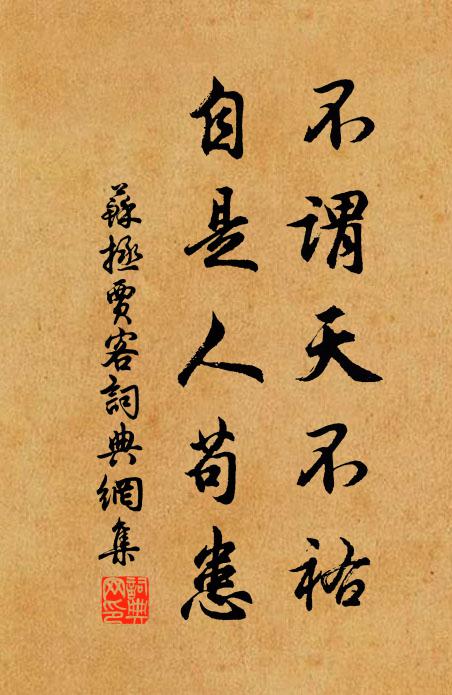 不謂天不祐
自是人苟患
蘇拯賈客詞典網集
詞典網印